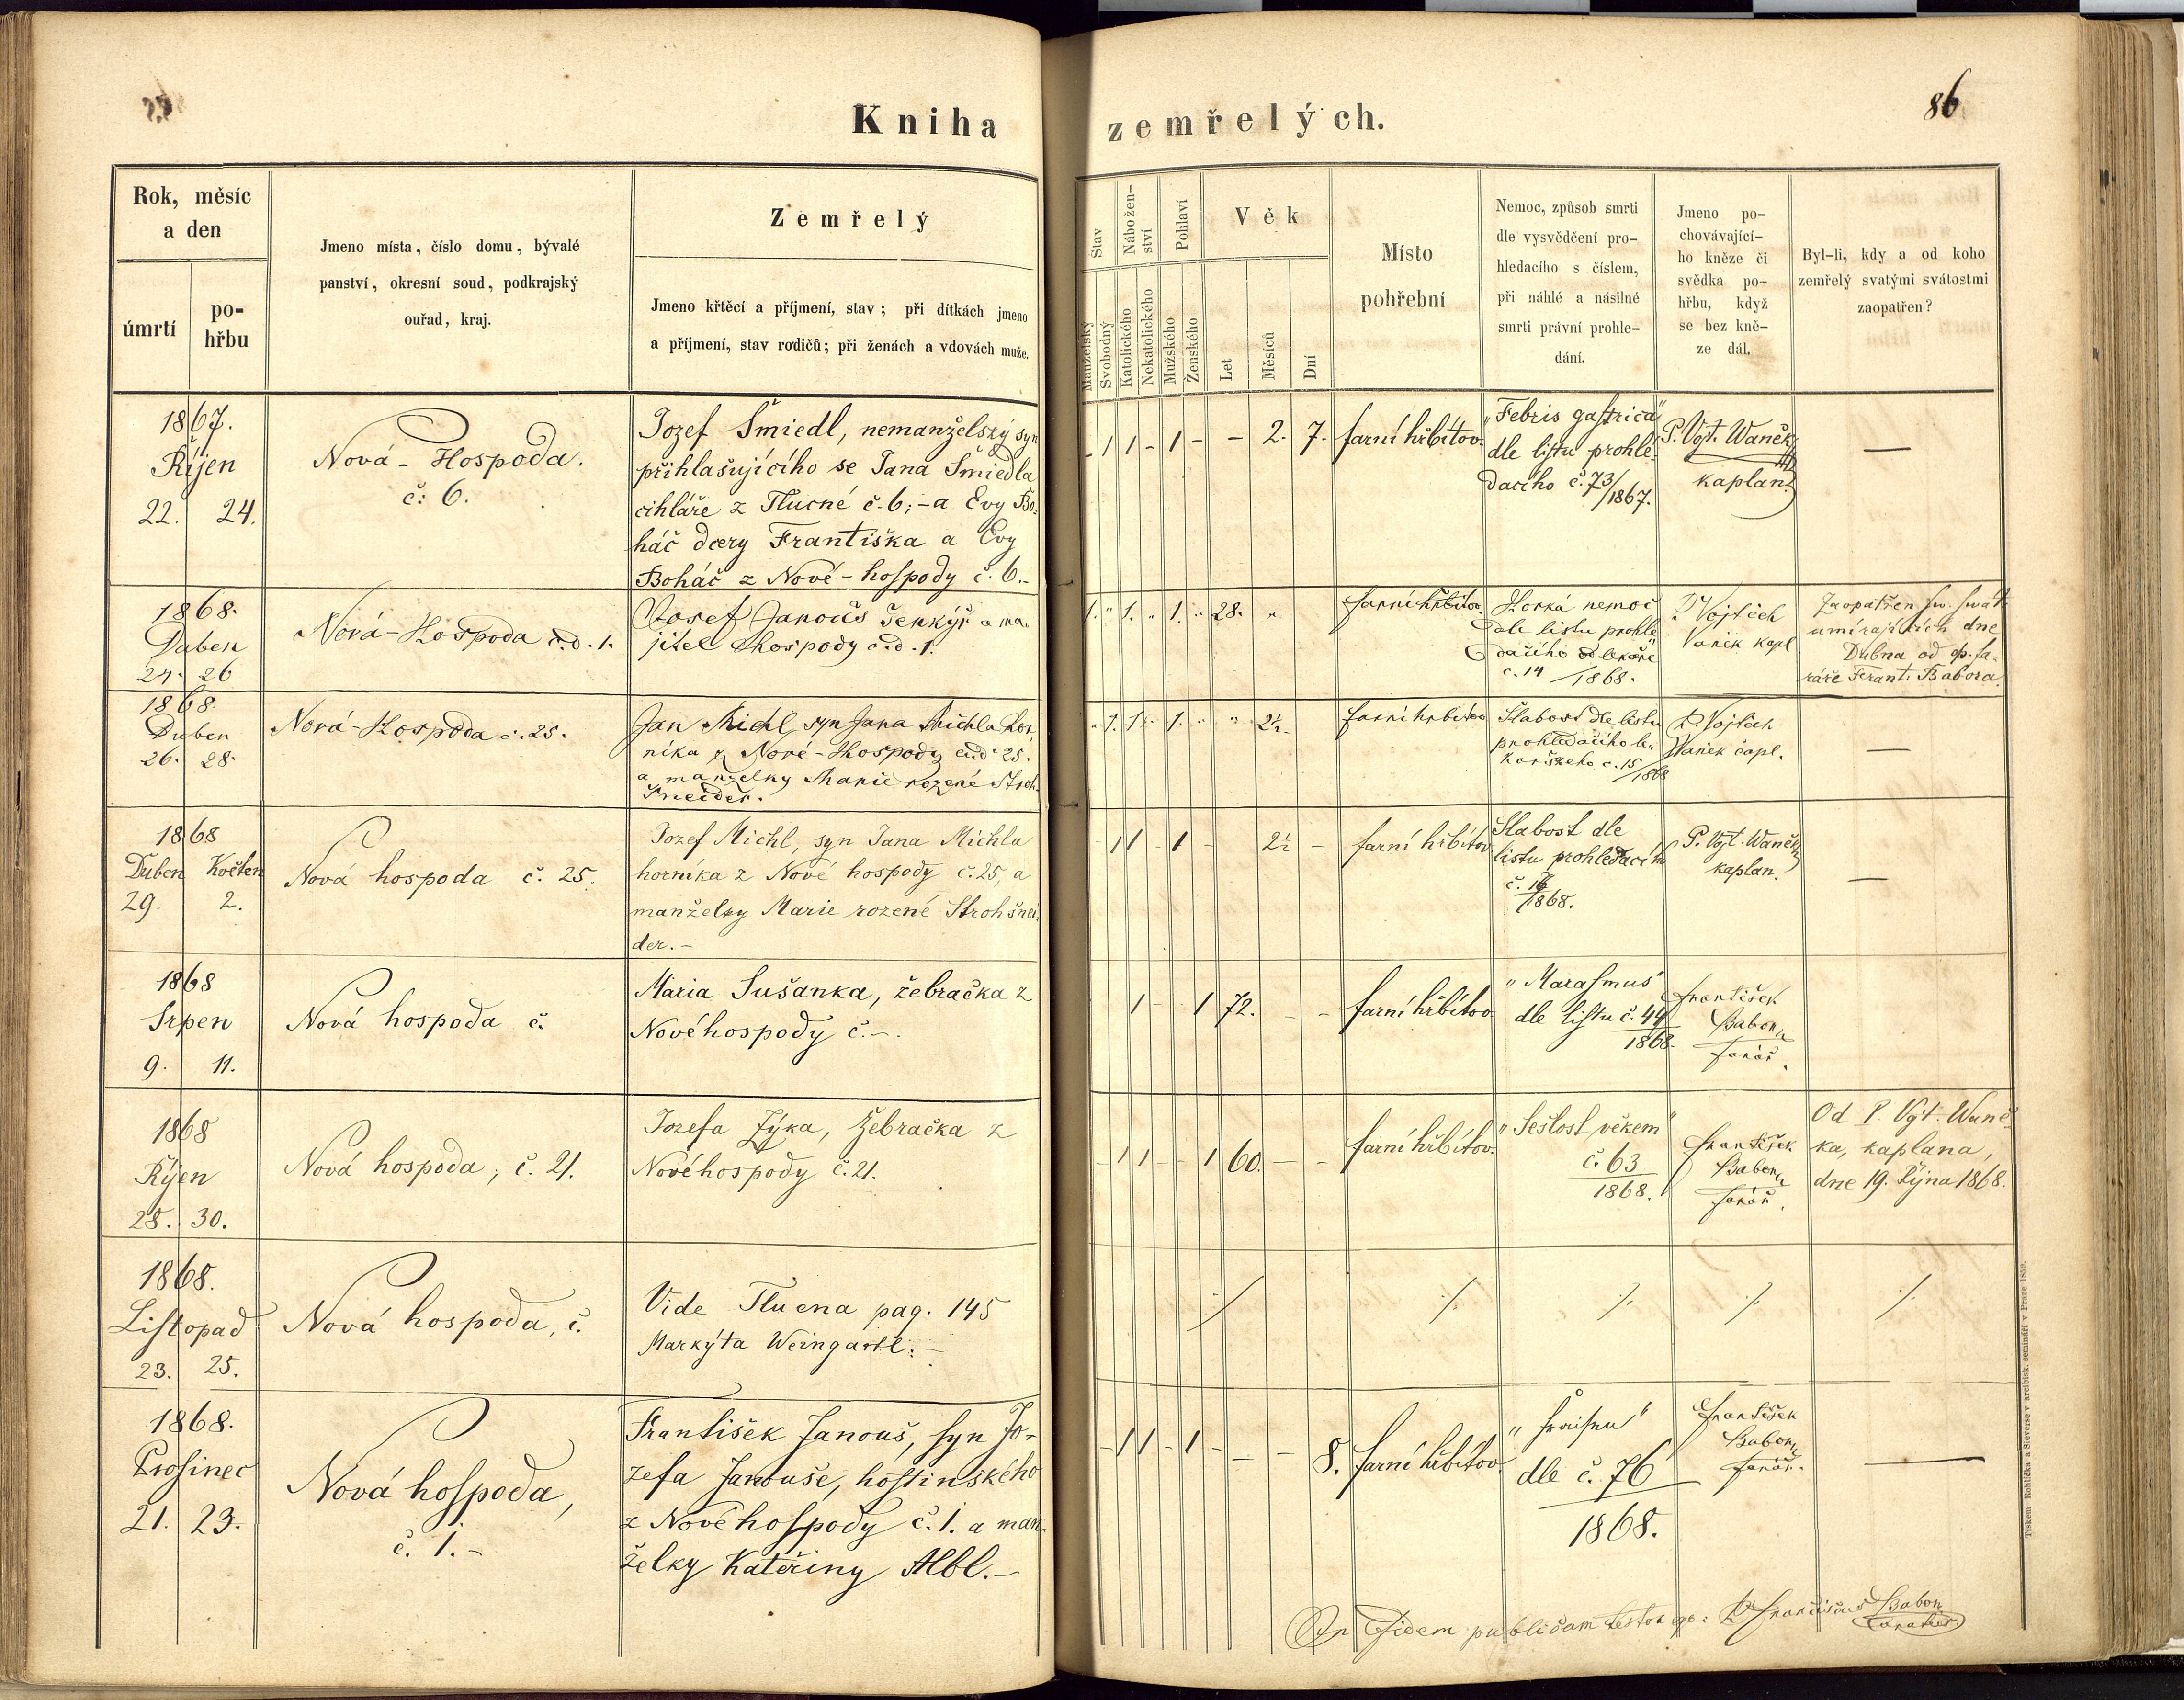 Kniha zemřelých.
86
Rok, měsíc
a den
úmrtí
po-
hřbu
Jmeno místa, číslo domu, bývalé
panství, okresní soud, podkrajský
ouřad, kraj.
Zemřelý
Jmeno křtěcí a příjmení, stav; při dítkách jmeno
a příjmení, stav rodičů; při ženách a vdovách muže.
Stav
Manželský
Svobodný
Nábožen-
ství
Katolického
Nekatolického
Pohlaví
Mužského
Ženského
Věk
Let
Měsíců
Dní
Místo
pohřební
Nemoc, způsob smrti
dle vysvědčení pro-
hledacího s číslem,
při náhlé a násilné
smrti právní prohle-
dání.
Jmeno po-
chovávající-
ho kněze či
svědka po-
hřbu, když
se bez kně-
ze dál.
Byl-li, kdy a od koho
zemřelý svatými svátostmi
zaopatřen?
1867.
Říjen
22. 24.
Nová-Hospoda.
č: 6.
Jozef Šmiedl, nemanželský syn
přihlašujícího se Jana Šmiedla
cihláře z Tlucné č.6;-a Evy Bo-
háč dcery Františka a Evy
Boháč z Nové-hospody č.6.-
- 1 1 - 1 - - 2. 7.
farní hřbitov.
"Febris gastrica"
dle listu prohle-
dacího č.73/1867.
P. Vojt. Waněk
kaplan.
—
1868.
Duben
24. 26
Nová-Hospoda č.d.1.
Josef Janouš šenkýř a ma-
jitel hospody č.d.1.
1. " 1. " 1. " 28. "
farní hřbitov
Horká nemoc
dle listu prohle-
dacího
č.14/1868.
P. Vojtěch
Vaněk kapl
Zaopatřen sv. svát
umírajících dne
Dubna od p. fa-
ráře Frant. Babora.
1868
Duben
26. 28.
Nová-Hospoda č.25.
Jan Michl, syn Jana Michla hor-
níka z Nové-Hospody čd.25.
a manželky Marie rozené Stroh-
šneider.
" 1. 1. " 1. " " 2½ -
farní hřbitov
Slabost dle listu
prohledacího le-
kařského č.15/1868
P. Vojtěch
Vaněk capl.
—
1868
Duben Květen
29. 2.
Nová hospoda č. 25.
Jozef Michl, syn Jana Michla
horníka z Nové hospody č.25, a
manželky Marie rozené Strohšnei-
der.-
- 1 1 - 1 - 2½ -
farní hřbitov
Slabost dle
listu prohledacího
č. 16/1868.
P. Vojt. Waněk
kaplan.
—
1868
Srpen
9. 11.
Nová hospoda č.
Maria Sušanka, žebračka z
Novéhospody č.-.
1 - 1 72. - -
farní hřbitov
"Marasmus"
dle listu č.44
1868.
František
Babor
farář.
1868
Říjen
28. 30.
Nová hospoda, č. 21.
Jozefa Zýka, žebračka z
Novéhospody č.21.
- 1 1 - - 1 60. - -
farní hřbitov.
"Sešlost věkem"
č.63
1868.
František
Babor
farář.
Od P. Vojt. Waně-
ka, kaplana,
dne 19. Října 1868.
1868.
Listopad
23. 25.
Nová hospoda, č.
Vide Tlucna pag. 145
Markýta Weingartl.-
1868.
Prosinec
21. 23.
Nová hospoda,
č. 1.-
František Janouš, syn Jo-
zefa Janouše, hostinského
z Nové hospody č.1. a man-
želky Kateřiny Albl.-
- 1 1 - 1 - - - 8.
farní hřbitov.
dle č. 76
1868.
František
Babor
farář.
—
In fidem publicam testor
Babor
Tiskem Rohlíčka a Sieverse v arcibisk. semináři v Praze 1859.